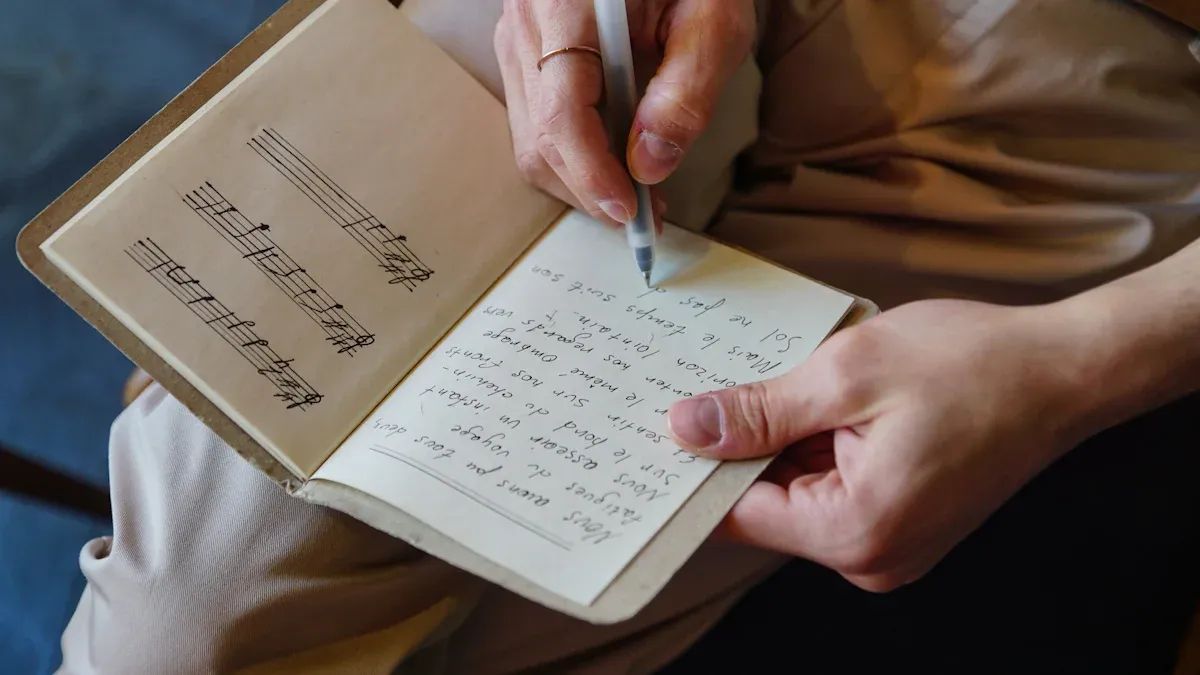 Nous pu tous deux
fatigues du voyage
Nous asseoir un instant
sur le bord du chemin-
Et sentir sur nos fronts
le même ombrage
nos regards vers
lointain-
Mais le temps suit son
Sol ne pas